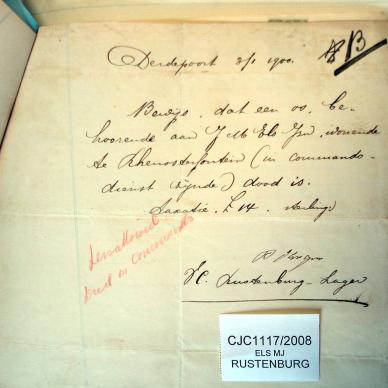 Derdepoort 2/1 1900.
B
Bewijs, dat een os, be-
hoorende aan J M Els Jzn, wonende
te Rhenosterfontein (in commando-
dienst zijnde) dood is.
Taxatie, £ 14. sterling
Disallowed
Used in commando
VC. Rustenburg-Lager
CJC1117/2008
ELS MJ
RUSTENBURG